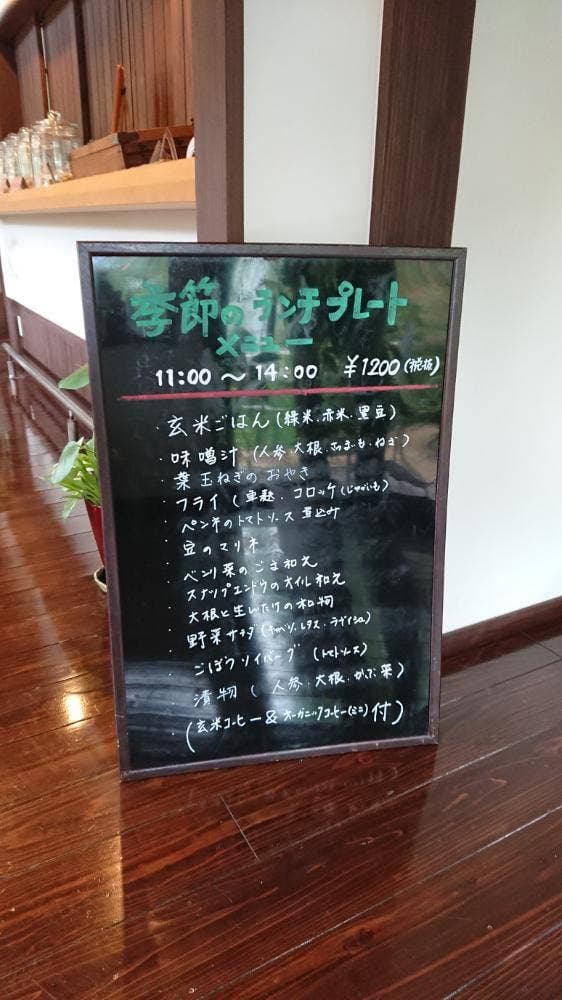 季節のランチプレート
メニュー
11:00 〜 14:00 ¥1200(税抜)
・玄米ごはん(緑米.赤米.黒豆)
・味噌汁(人参.大根.さつまいも.ねぎ)
・葉玉ねぎのおやき
・フライ(車麩.コロッケ(じゃがいも)
・ペンネのトマトソース煮込み
・豆のマリネ
・ベンリ菜のごま和え
・スナップエンドウのオイル和え
・大根と生しいたけの和物
・野菜サラダ(キャベツ.レタス.ラディシュ)
・ごぼうソイバーグ(トマトソース)
・漬物(人参.大根.かぶ菜)
・(玄米コーヒー&オーガニックコーヒー(ミニ)付)